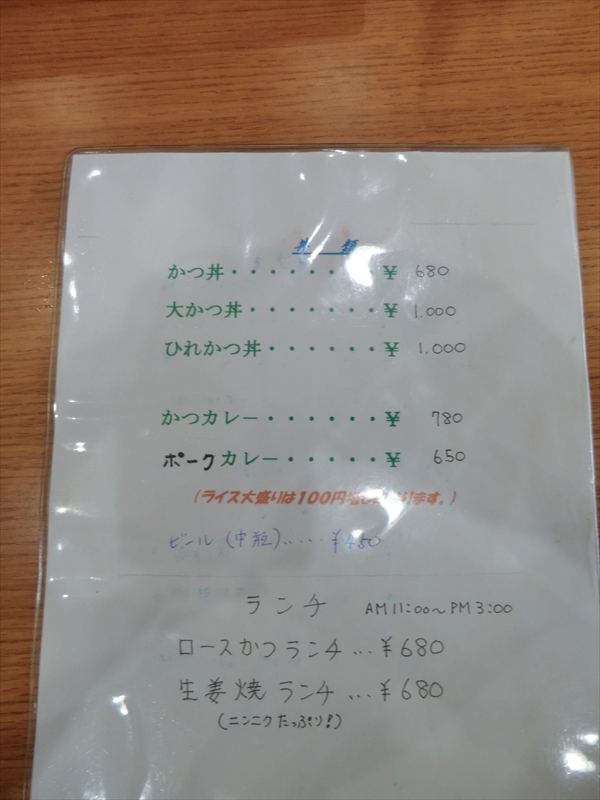 丼 類
かつ丼・・・・・・・・¥ 680
大かつ丼・・・・・・・¥ 1.000
ひれかつ丼・・・・・・¥ 1.000
かつカレー・・・・・・¥ 780
ポークカレー・・・・・¥ 650
(ライス大盛りは100円増しとなります。)
ビール (中瓶)‥‥¥450
ランチ AM11:00~PM3:00
ロースかつランチ…¥680
生姜焼ランチ…¥680
(ニンニクたっぷり!)